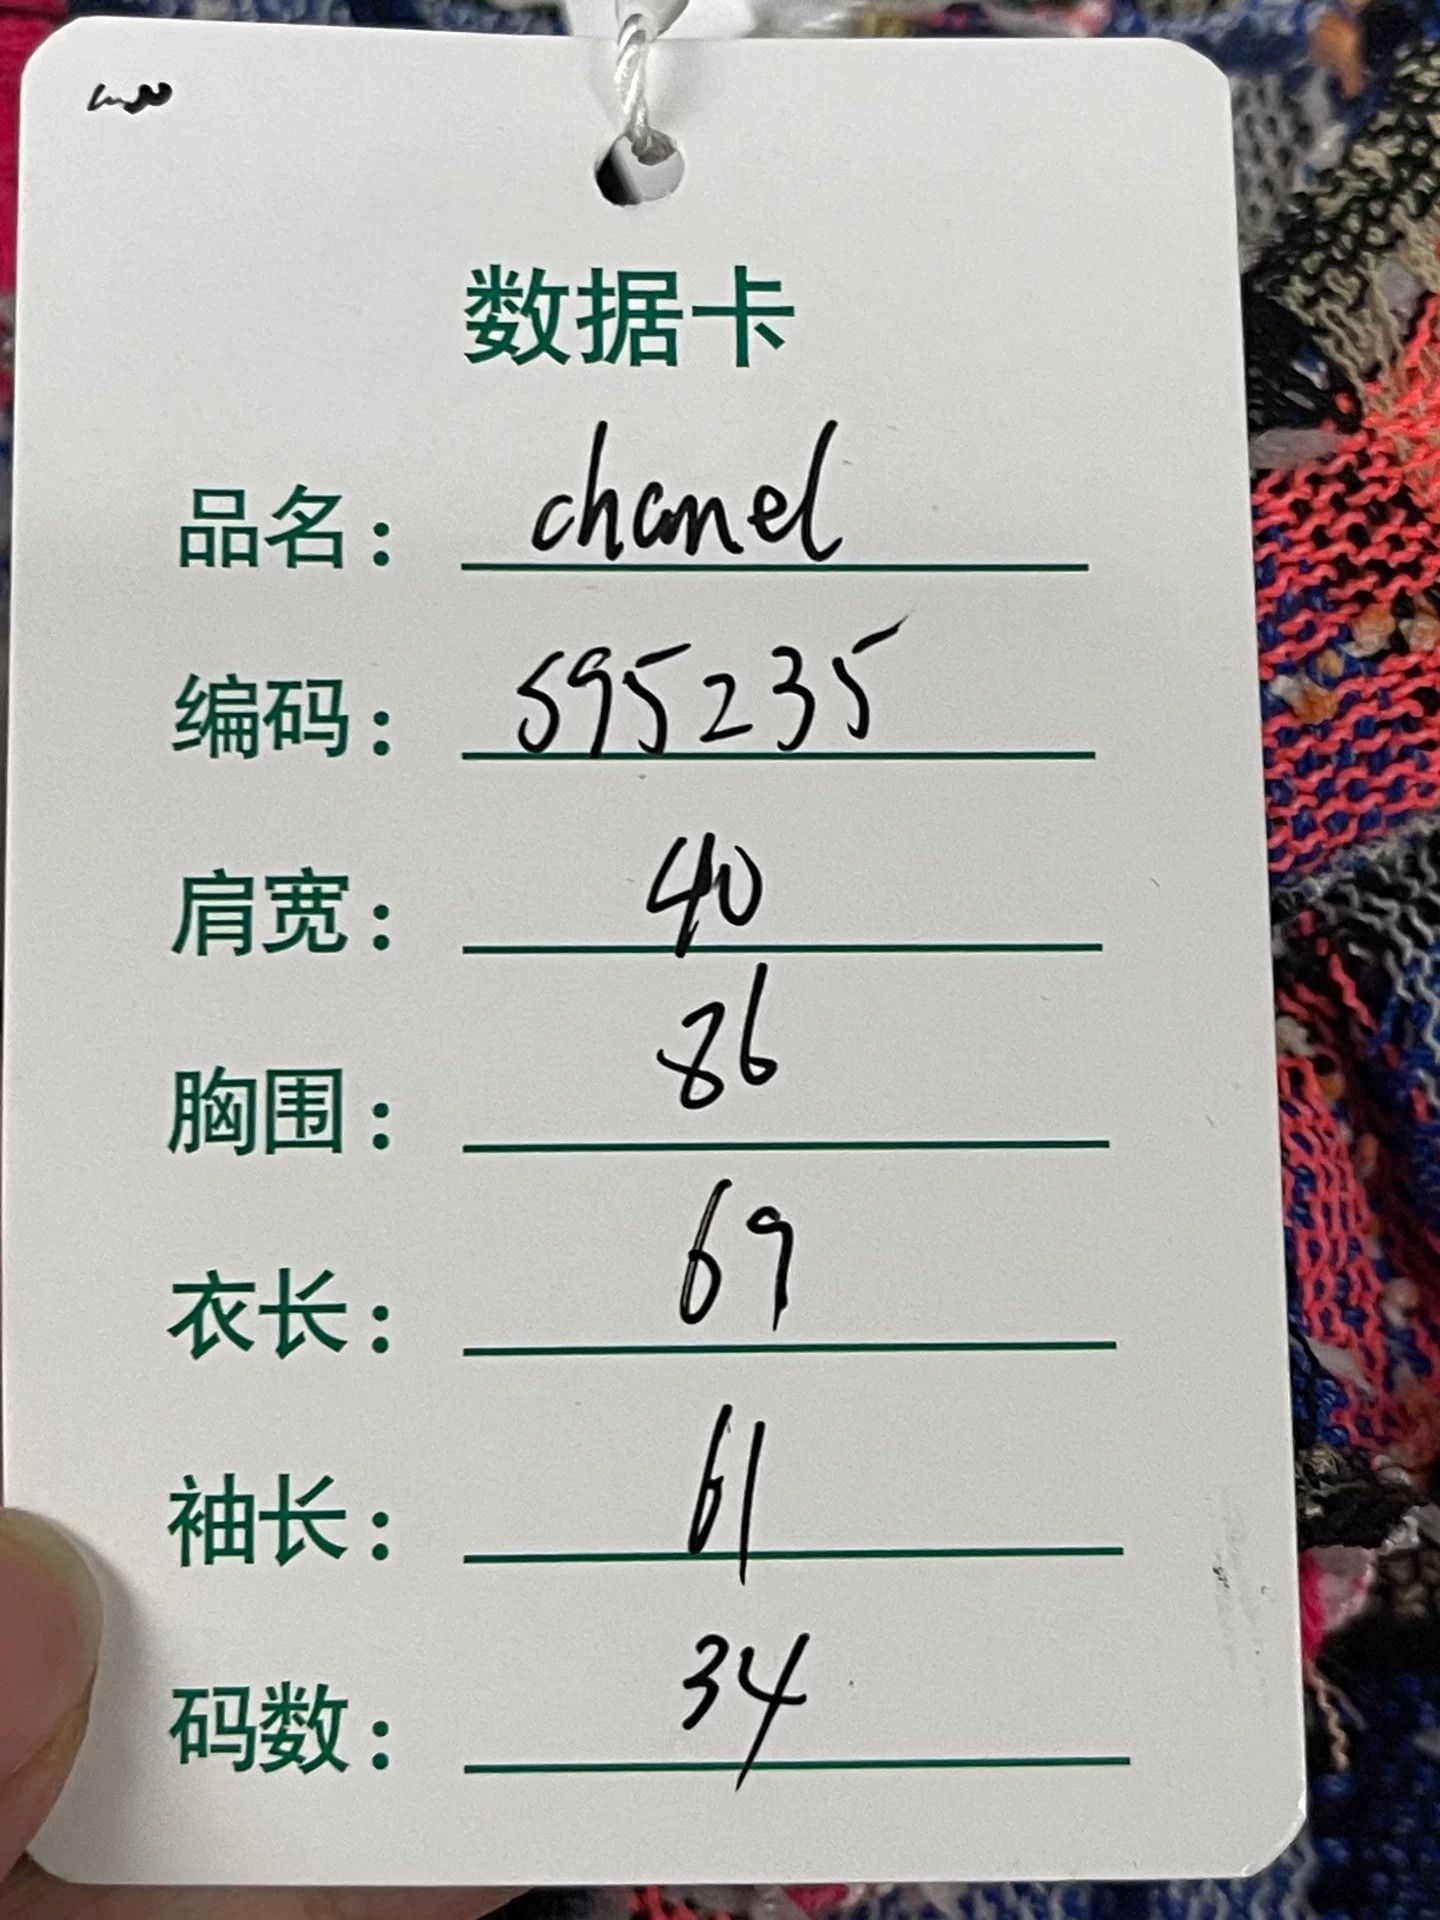 数据卡
品名： chanel
编码： 595235
肩宽： 40
胸围： 86
衣长： 69
袖长： 61
码数： 34